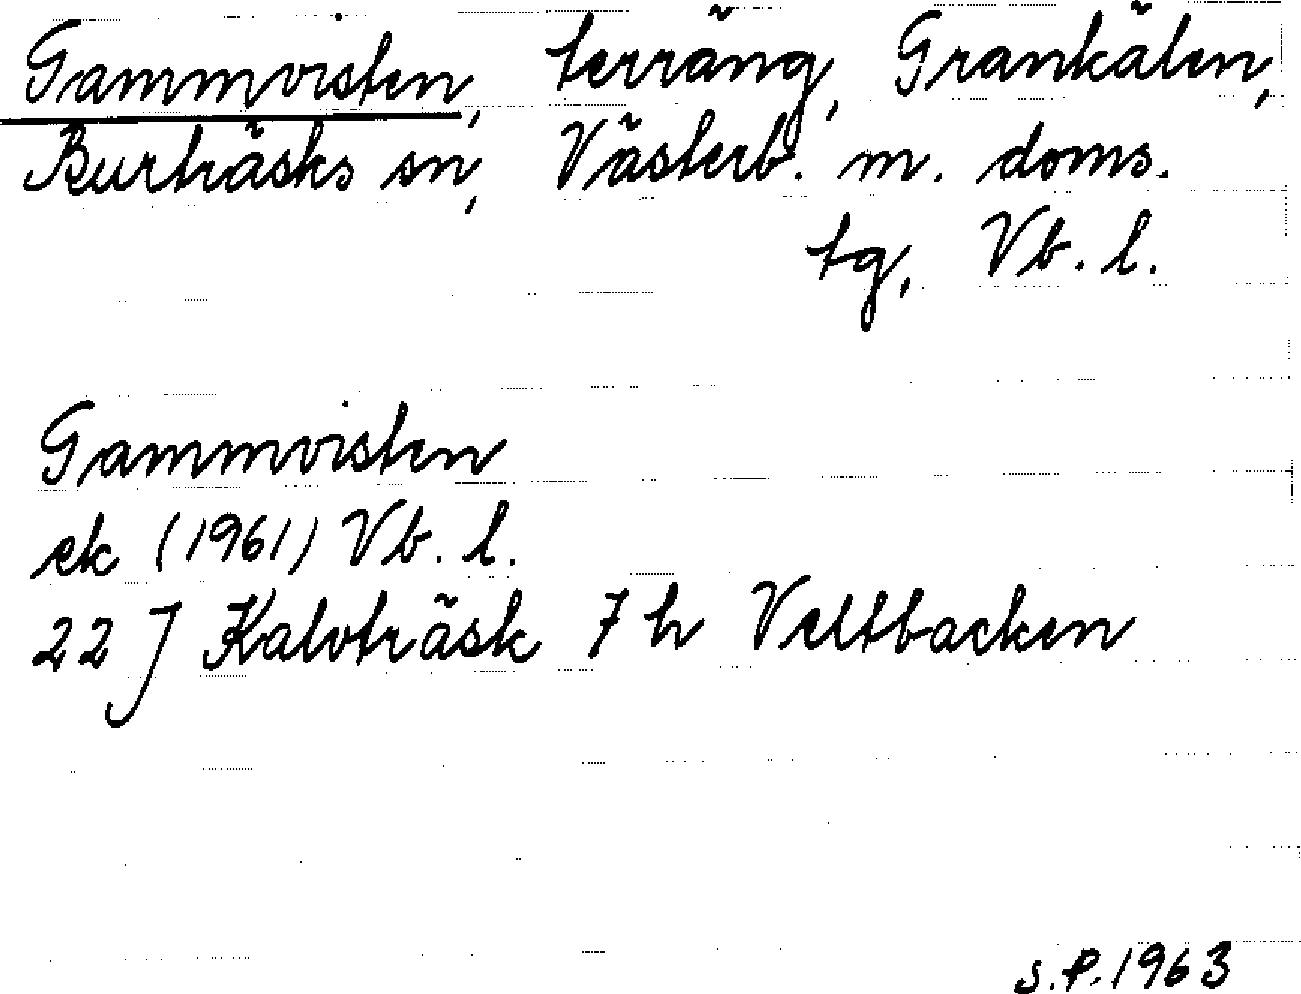 Gammvisten, terräng, Grankälen,
Burträsks sn, Västerb. m. doms.
tg, Vb. l.
Gammvisten
ek (1961) Vb. l.
22 J Kalvträsk 7 h Veltbacken
S.P. 1963